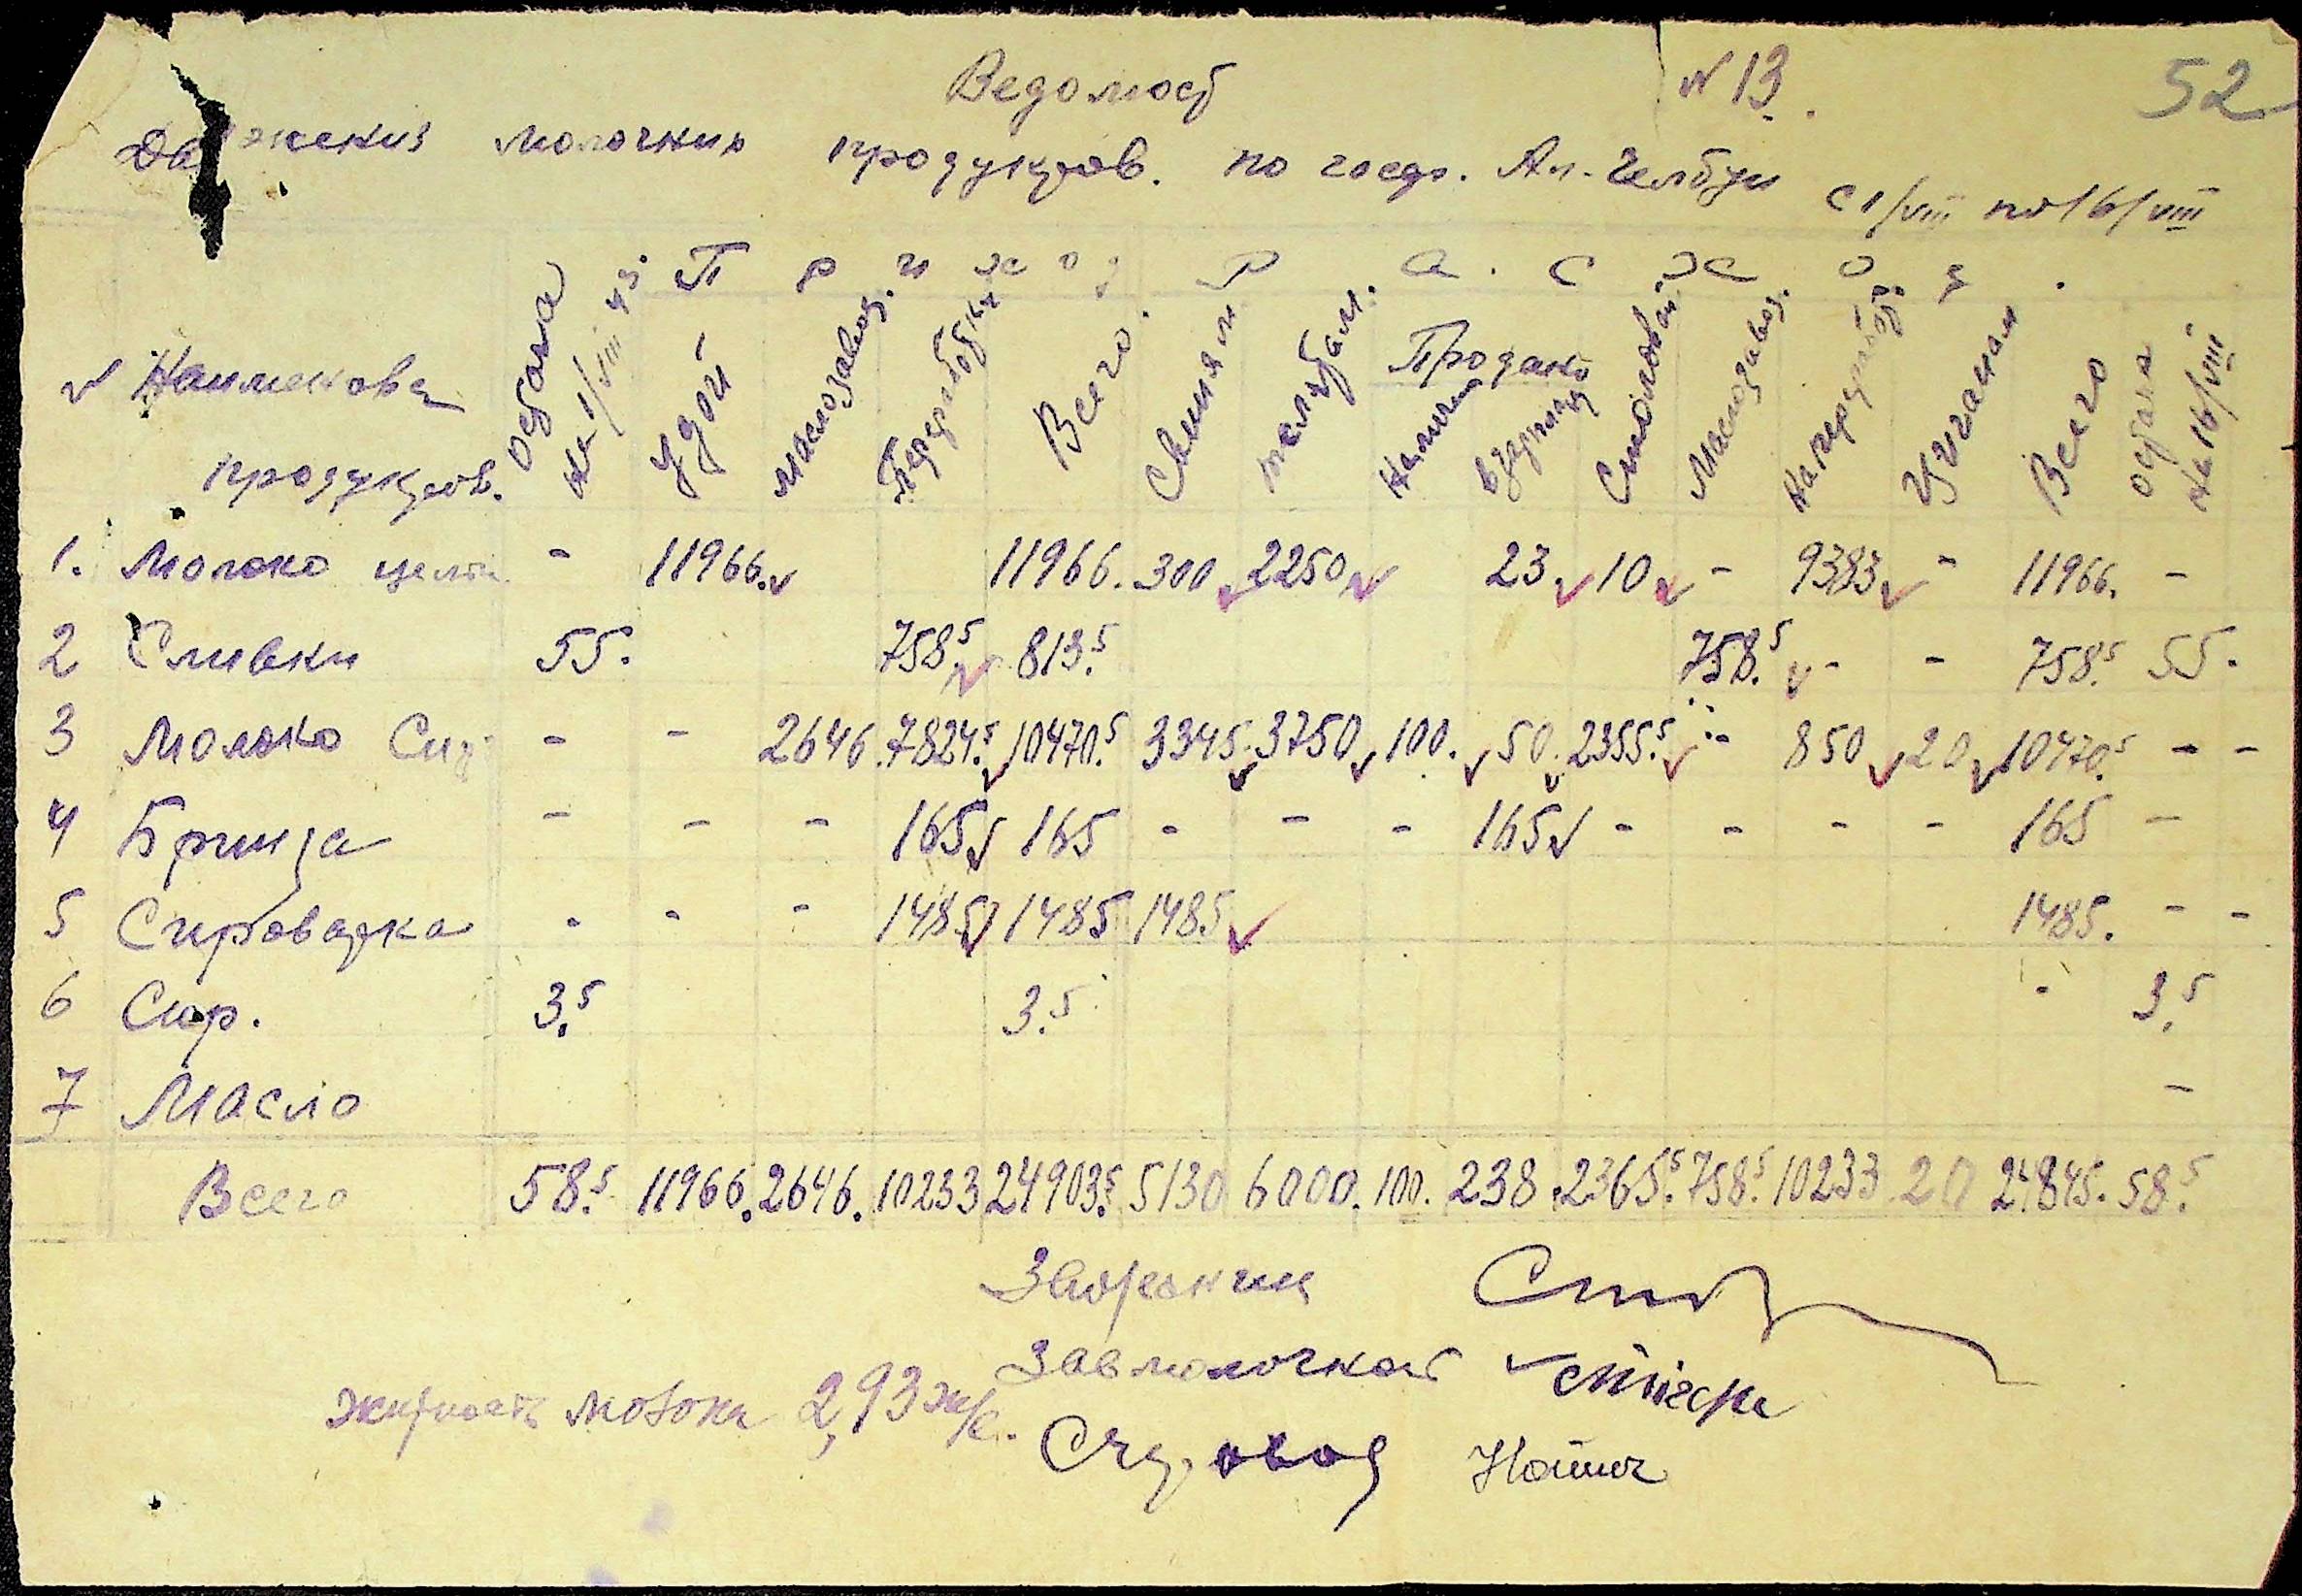 Ведомост N 13. 52
движения молочних продуктов. по госдр. Ал. Челбун с 1/VIII по 16/VIII
Приход Расход.
N Наименован продуктов. Остаток на 1/VIII Удой Маслозавод. Переработки Всего. Свиням телятам. Продано Наличн в зарплату Столовой Маслозавод. На переработ. Цыганам Всего Остаток На 16/VIII
1. Молоко цельн. - 11966. 11966. 300 2250 23 10 - 9383 - 11966. -
2 Сливки 55. 758.5 813.5 758.5 - - 758.5 55.
3 Молоко Сиз - - 2646. 7824.5 10470.5 3345. 3750 100. 50. 2355.5 - 850 20 10470.5 - -
4 Бринза - - - 165 165 - - - 165 - - - - 165 -
5 Сироватка - - - 1485 1485 1485 1485. - -
6 Сир. 3.5 3.5 - 3.5
7 Масло -
Всего 58.5 11966. 2646. 10233 24903.5 5130 6000. 100. 238. 2365.5 758.5 10233 20 24845. 58.5
Завмолочной
жирность молока 2,93
Счетовод